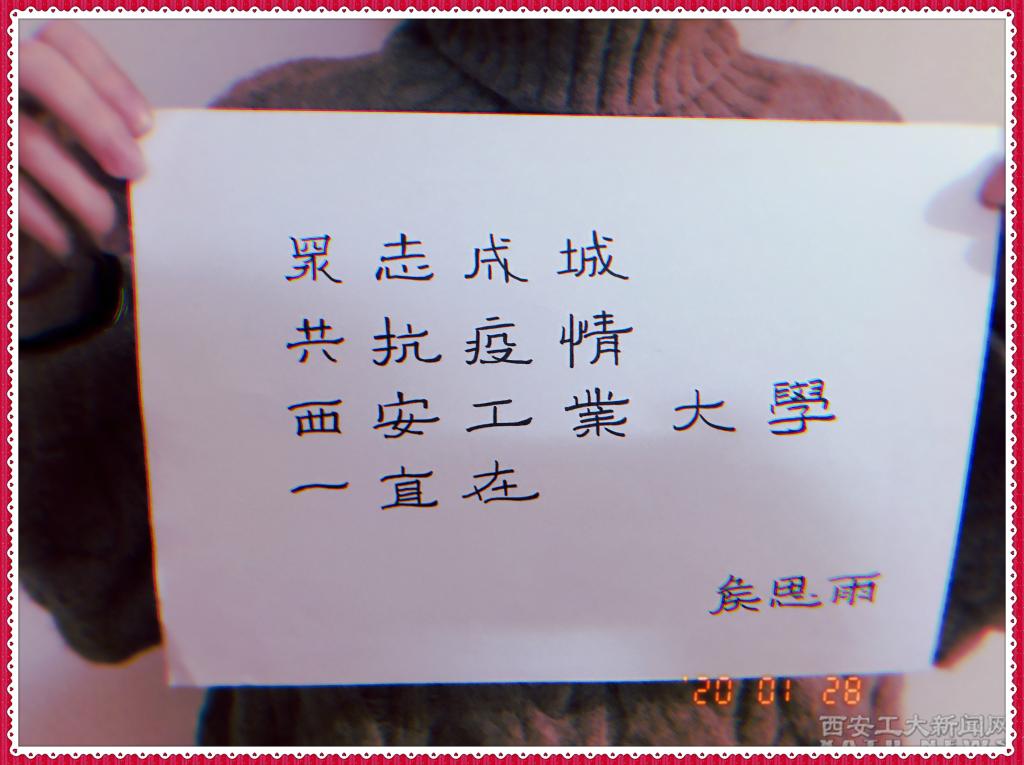 眾志成城
共抗疫情
西安工業大學
一直在
侯思雨
'20 01 28
西安工大新闻网
XATU NEWS